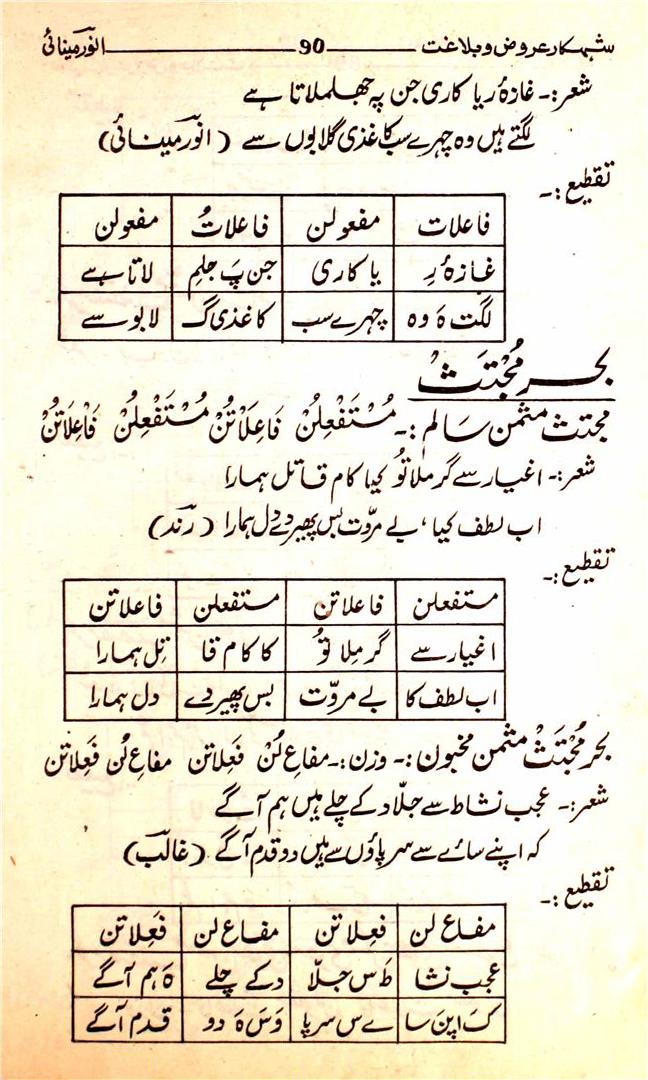 شہکار عروض و بلاغت ــــــ 90 ــــــ انور مینائی
شعر:۔ غازۂ ریا کاری جن پہ جھلملاتا ہے
لگتے ہیں وہ چہرے سب کاغذی گلابوں سے (انور مینائی)
تقطیع:۔
فاعلات مفعولن فاعلاتُ مفعولن
غازۂ رِ یا کاری جن پَ جلمِ لاتا ہے
لگت ہَ وہ چہرے سب کاغذی گ لابو سے
بحر مُجْتَثْ
مجتث مثمن سالم:۔ مُسْتَفْعِلُنْ فَاعِلَاتُنْ مُسْتَفْعِلُنْ فَاعِلَاتُنْ
شعر:۔ اغیار سے گر ملا تُو کیا کام قاتل ہمارا
اب لطف کیا، بے مروّت بس پھیر دے دل ہمارا (رند)
تقطیع:۔
مستفعلن فاعلاتن مستفعلن فاعلاتن
اغیار سے گر مِلا تُو کا کام قا تِل ہمارا
اب لطف کا بے مروّت بس پھیر دے دل ہمارا
بحر مُجْتَثْ مثمن مخبون:۔ وزن:۔ مفاعِ لُنْ فَعِلاتن مفاعِ لُن فَعِلاتن
شعر:۔ عجب نشاط سے جلّاد کے چلے ہیں ہم آگے
کہ اپنے سائے سے سر پاؤں سے ہیں دو قدم آگے (غالب)
تقطیع:۔
مفاع لن فعلاتن مفاع لن فَعِلاتن
عجب نشا طَ س جلّا د کے چلے ہَ ہم آگے
کَ اپنَ سا ے س سر پا وَسَ ہَ دو قدم آگے